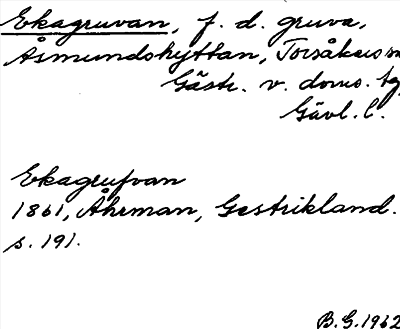 Ekagruvan, f. d. gruva,
Åsmundshyttan, Torsåkers
Gästr. v. doms.
Gävl. l.
Ekagrufvan
1861, Åhrman, Gestrikland.
s. 191.
B.G. 1962